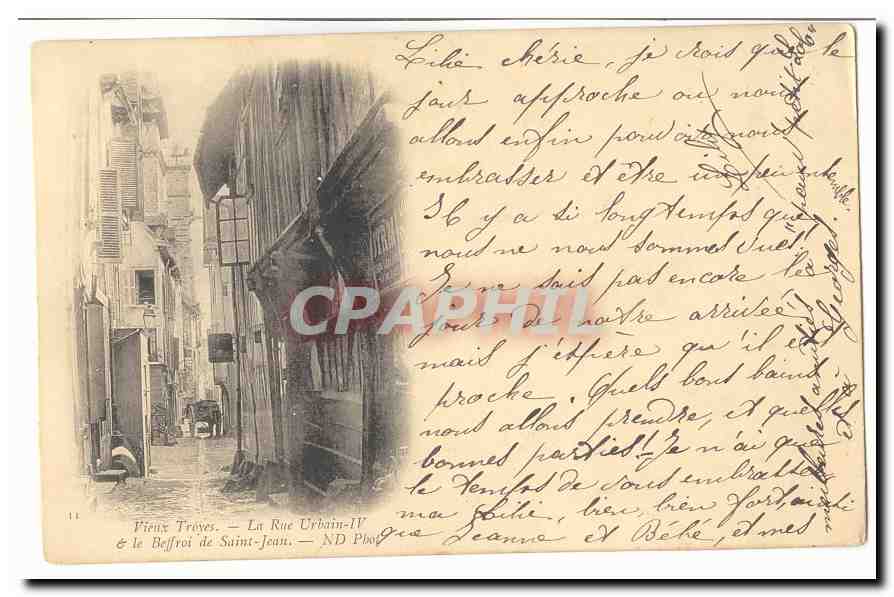 Lilie chérie, je crois que le
jour approche ou nous
allons enfin pouvoir nous
embrasser et être un peu ensemble.
Il y a si longtemps que
nous ne nous sommes vues!
Je ne sais pas encore le
jour de notre arrivée;
mais j'espère qu'il est
proche. Quels bons bains
nous allons prendre, et quelles
bonnes parties! Je n'ai que
le temps de vous embrasser
ma Lilie, bien, bien fort, ainsi
que Jeanne et Bébé, et mes
meilleures amitiés à
et à Georges.
Lily
pour petit
CPAPHIL
11
Vieux Troyes. — La Rue Urbain-IV
& le Beffroi de Saint-Jean. — ND Phot